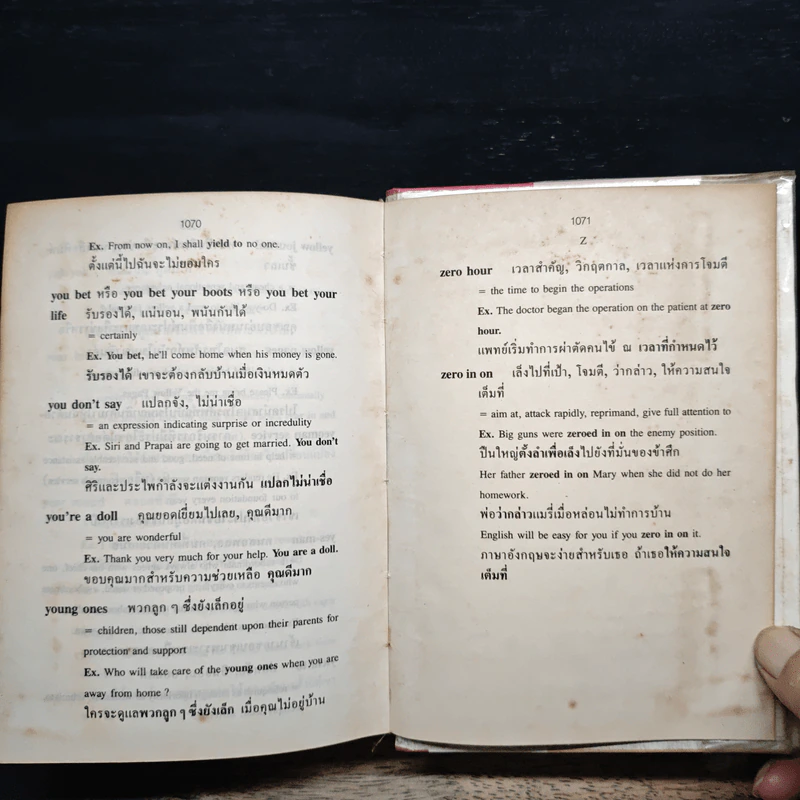 1070
Ex. From now on, I shall yield to no one.
ตั้งแต่นี้ไปฉันจะไม่ยอมใคร
you bet หรือ you bet your boots หรือ you bet your
life รับรองได้, แน่นอน, พนันกันได้
= certainly
Ex. You bet, he'll come home when his money is gone.
รับรองได้ เขาจะต้องกลับบ้านเมื่อเงินหมดตัว
you don't say แปลกจัง, ไม่น่าเชื่อ
= an expression indicating surprise or incredulity
Ex. Siri and Prapai are going to get married. You don't
say.
ศิริและประไพกำลังจะแต่งงานกัน แปลกไม่น่าเชื่อ
you're a doll คุณยอดเยี่ยมไปเลย, คุณดีมาก
= you are wonderful
Ex. Thank you very much for your help. You are a doll.
ขอบคุณมากสำหรับความช่วยเหลือ คุณดีมาก
young ones พวกลูก ๆ ซึ่งยังเล็กอยู่
= children, those still dependent upon their parents for
protection and support
Ex. Who will take care of the young ones when you are
away from home ?
ใครจะดูแลพวกลูก ๆ ซึ่งยังเล็ก เมื่อคุณไม่อยู่บ้าน
1071
Z
zero hour เวลาสำคัญ, วิกฤตกาล, เวลาแห่งการโจมตี
= the time to begin the operations
Ex. The doctor began the operation on the patient at zero
hour.
แพทย์เริ่มทำการผ่าตัดคนไข้ ณ เวลาที่กำหนดไว้
zero in on เล็งไปที่เป้า, โจมตี, ว่ากล่าว, ให้ความสนใจ
เต็มที่
= aim at, attack rapidly, reprimand, give full attention to
Ex. Big guns were zeroed in on the enemy position.
ปืนใหญ่ตั้งลำเพื่อเล็งไปยังที่มั่นของข้าศึก
Her father zeroed in on Mary when she did not do her
homework.
พ่อว่ากล่าวแมรี่เมื่อหล่อนไม่ทำการบ้าน
English will be easy for you if you zero in on it.
ภาษาอังกฤษจะง่ายสำหรับเธอ ถ้าเธอให้ความสนใจ
เต็มที่